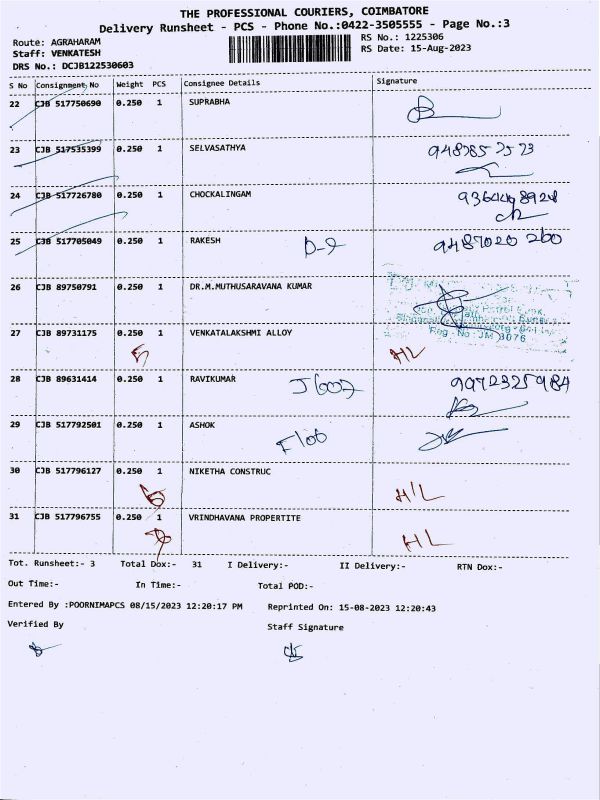 THE PROFESSIONAL COURIERS, COIMBATORE
Delivery Runsheet - PCS - Phone No.:0422-3505555 - Page No.:3
Route: AGRAHARAM
RS No.: 1225306
Staff: VENKATESH
RS Date: 15-Aug-2023
DRS No.: DCJB122530603
S No Consignment No Weight PCS Consignee Details Signature
22 CJB 517750690 0.250 1 SUPRABHA
23 CJB 517535399 0.250 1 SELVASATHYA
24 CJB 517726780 0.250 1 CHOCKALINGAM
25 CJB 517705049 0.250 1 RAKESH D-2 9487020 260
26 CJB 89750791 0.250 1 DR.M.MUTHUSARAVANA KUMAR
Reg - No : JM 3076
27 CJB 89731175 0.250 1 VENKATALAKSHMI ALLOY
HL
28 CJB 89631414 0.250 1 RAVIKUMAR 9972325984
29 CJB 517792501 0.250 1 ASHOK
30 CJB 517796127 0.250 1 NIKETHA CONSTRUC
H/L
31 CJB 517796755 0.250 1 VRINDHAVANA PROPERTITE
HL
Tot. Runsheet:- 3 Total Dox:- 31 I Delivery:- II Delivery:- RTN Dox:-
Out Time:- In Time:- Total POD:-
Entered By :POORNIMAPCS 08/15/2023 12:20:17 PM Reprinted On: 15-08-2023 12:20:43
Verified By Staff Signature